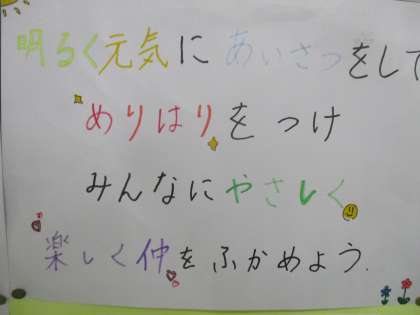 明るく元気にあいさつをして
めりはりをつけ
みんなにやさしく
楽しく仲をふかめよう.